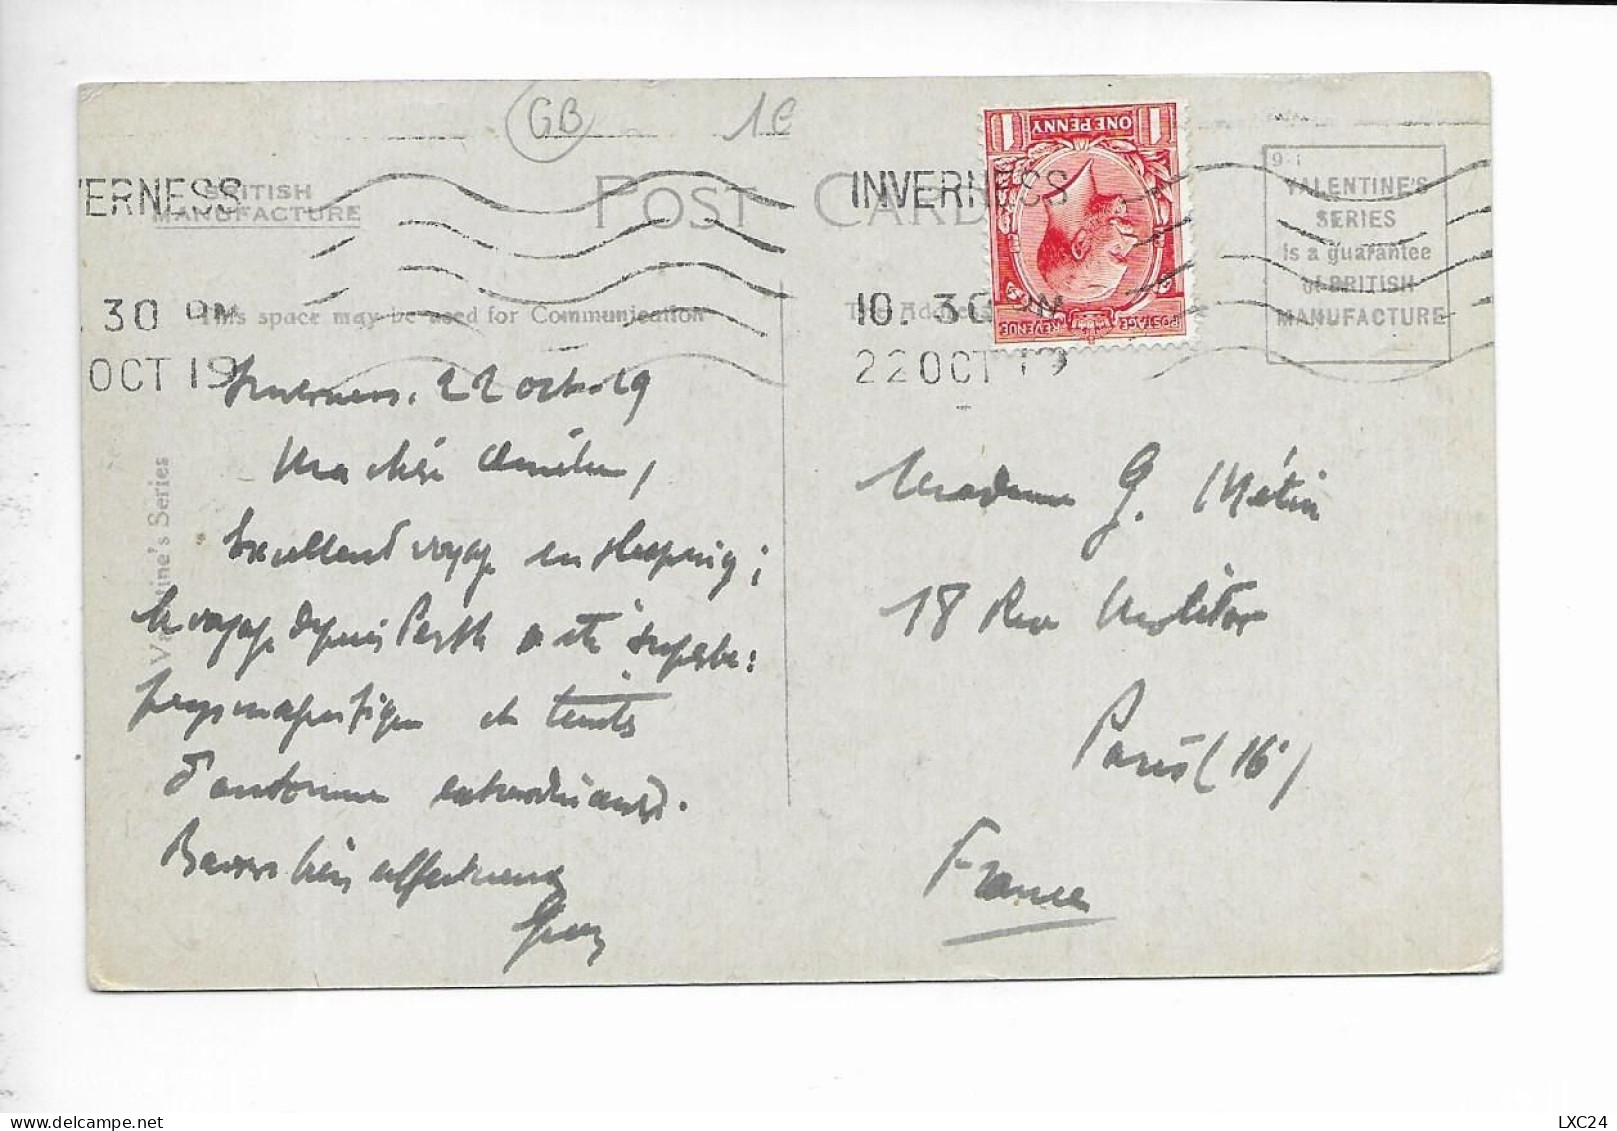 GB 1€
INVERNESS
BRITISH
MANUFACTURE
POST CARD
INVERNESS
ONE PENNY
POSTAGE REVENUE
VALENTINE'S
SERIES
is a guarantee
of BRITISH
MANUFACTURE
. 30 PM
This space may be used for Communication
10. 30 PM
The Address
OCT 19
22 OCT 19
Valentine's Series
Inverness. 22 octob 19
Ma chère
Excellent voyage en sleeping ;
le voyage depuis Perth a été superbe :
pays magnifique et teintes
d'automne extraordinaires.
Baisers bien affectueux
Guy
Madame G. Métin
18 Rue Molitor
Paris (16e)
France
LXC24